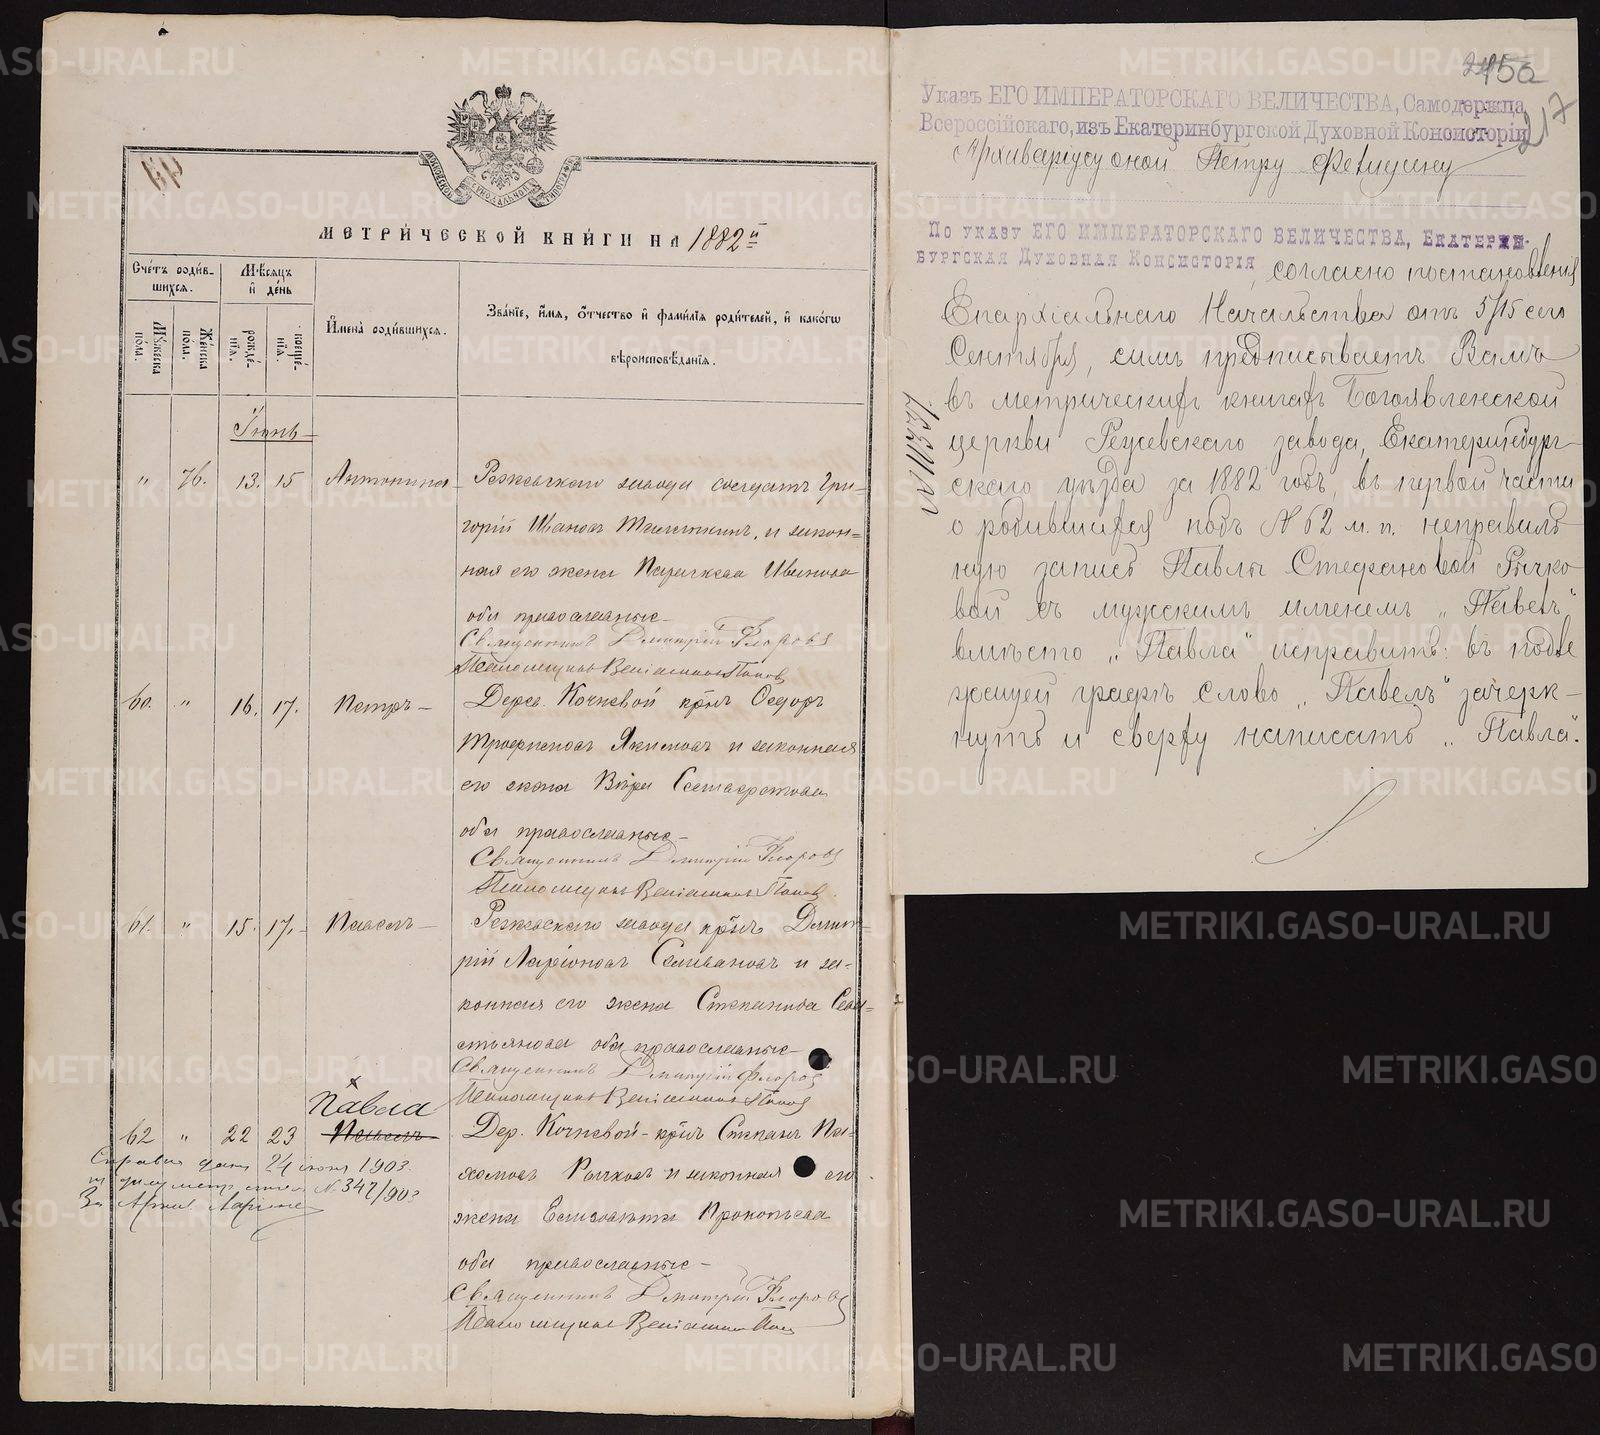 МЕТРИ́ЧЕСКОЙ КНИ́ГИ НА 1882 й
Сче́тъ роди́вшихся.
Му́жеска по́ла.
Же́нска по́ла.
Мѣ́сяцъ и де́нь
рожде́нїя.
креще́нїя.
И҆мена̀ роди́вшихся.
Зва́нїе, и҆́мя, ѻ҆́тчество и҆ фами́лїя роди́телей, и҆ како́гѡ
вѣроисповѣ́данїя.
Іюнь
" 76. 13. 15 Антонина
Режевскаго завода солдатъ Гри=
горій Ивановъ, и закон=
ная его жена Параскева Иванова
оба православные
Священникъ Димитрій Флоровъ
Псаломщикъ Веніаминъ Поповъ
60. " 16. 17. Петръ
Дерев. Кочневой кр̃нъ Ѳедоръ
Трофимовъ Якимовъ и законная
его жена Вѣра
оба православные
Священникъ Димитрій Флоровъ
Псаломщикъ Веніаминъ Поповъ
61. " 15. 17. Павелъ
Режевскаго завода кр̃нъ Димит=
рій Ларіоновъ Селивановъ и за=
конная его жена Степанида Сева=
стьянова оба православные
Священникъ Димитрій Флоровъ
Псаломщикъ Веніаминъ Поповъ
Павла
62 " 22 23 Павелъ
Дер. Кочневой кр̃нъ Стефанъ Па=
хомовъ Рычковъ и законная его
жена Елизавета Прокопьева
оба православные
Священникъ Димитрій Флоровъ
Псаломщикъ Веніаминъ Поп
Справка дана 24 іюня 1903.
№ 347/903
За Архив.
450
217
Указъ ЕГО ИМПЕРАТОРСКАГО ВЕЛИЧЕСТВА, Самодержца
Всероссійскаго, изъ Екатеринбургской Духовной Консисторіи
Архиваріусу оной Петру Фетицину
По указу ЕГО ИМПЕРАТОРСКАГО ВЕЛИЧЕСТВА, Екатерин-
бургская Духовная Консисторія, согласно постановленія
Епархіальнаго Начальства отъ 5/15 сего
Сентября, симъ предписываетъ Вамъ
въ метрическихъ книгахъ Богоявленской
церкви Режевскаго завода, Екатеринбург-
скаго уѣзда за 1882 годъ, въ первой части
о родившихся подъ № 62 м. п. неправиль
ную запись Павлы Стефановой Рычко
вой съ мужскимъ именемъ „Павелъ"
вмѣсто „Павла" исправить: въ подле
жащей графѣ слово „Павелъ" зачерк-
нуть и сверху написать „Павла".
METRIKI.GASO-URAL.RU